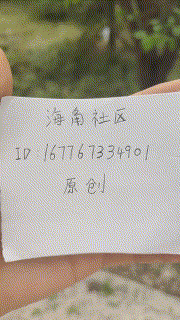 海角社区
ID 167767334901
原创